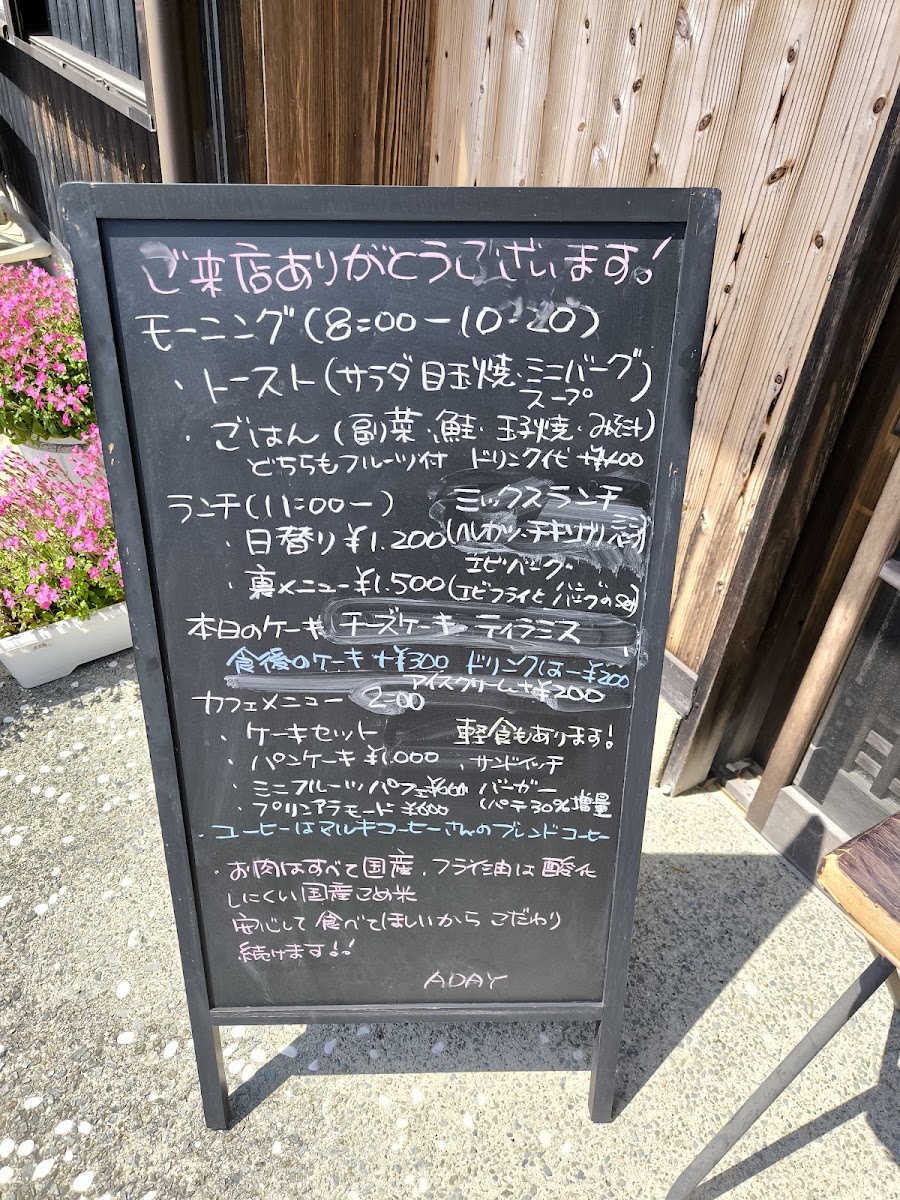 ご来店ありがとうございます!
モーニング(8:00-10:20)
・トースト(サラダ 目玉焼・ミニバーグ
スープ)
・ごはん(副菜・鮭・玉子焼・みそ汁)
どちらもフルーツ付 ドリンク代 +¥400
ランチ(11:00-) ミックスランチ
・日替り ¥1.200(ヒレカツ・チキン ミニバーグ)
エビバーグ
・裏メニュー ¥1.500(エビフライと バーグのset)
本日のケーキ チーズケーキ ティラミス
食後のケーキ +¥300 ドリンクは-¥200
アイスクリーム+¥200
カフェメニュー 2:00
・ケーキセット 軽食もあります!
・パンケーキ ¥1.000 、サンドイッチ
・ミニフルーツパフェ¥600 バーガー
・プリンアラモード ¥600 (パテ30%増量
・コーヒーはマルキコーヒーさんのブレンドコーヒー
・お肉はすべて国産、フライ油は酸化
しにくい国産こめ米
安心して食べてほしいから こだわり
続けます!!
ADAY